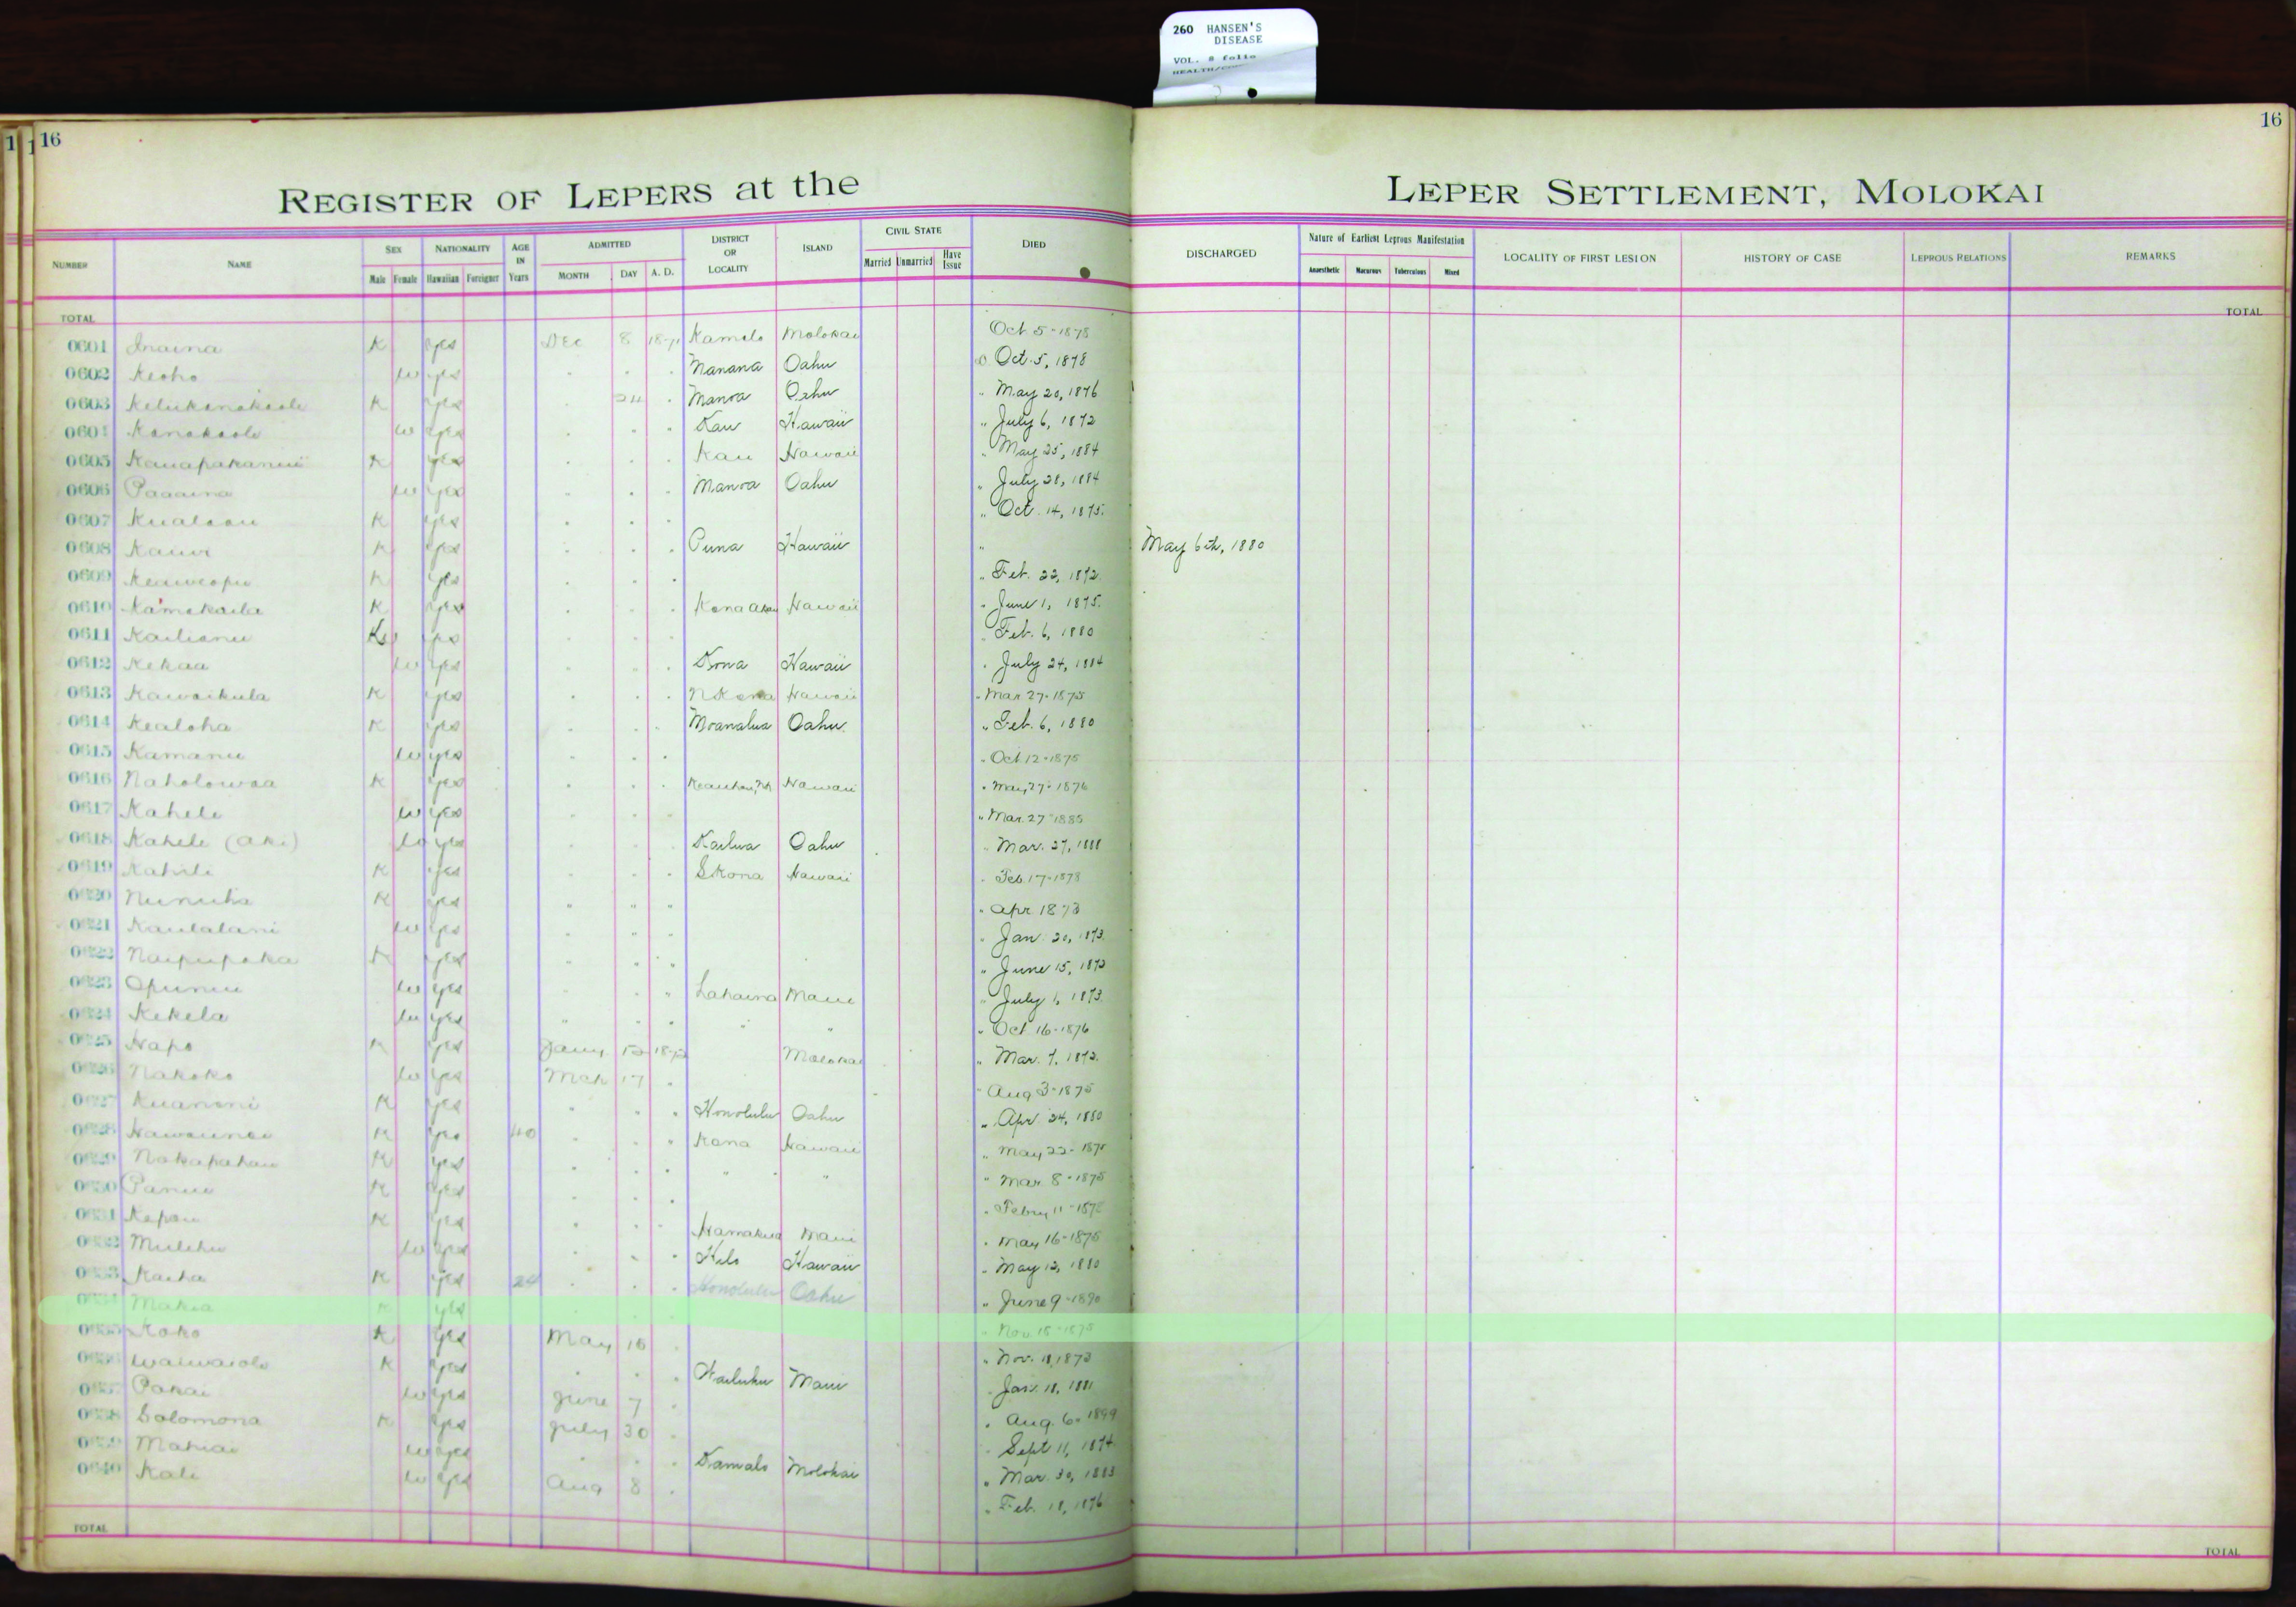 260 HANSEN'S
DISEASE
VOL. 8 folio
16
16
REGISTER OF LEPERS at the
LEPER SETTLEMENT, MOLOKAI
NUMBER NAME SEX NATIONALITY AGE IN Years ADMITTED DISTRICT OR LOCALITY ISLAND CIVIL STATE DIED DISCHARGED Nature of Earliest Leprous Manifestation LOCALITY OF FIRST LESION HISTORY OF CASE LEPROUS RELATIONS REMARKS
Male Female Hawaiian Foreigner MONTH DAY A. D. Married Unmarried Have Issue Anaesthetic Macurous Tuberculous Mixed
TOTAL TOTAL
0601 Inaina K yes Dec 8 Kamalo Molokai Oct 5-1878
0602 Keoho w yes Manana Oahu Oct. 5, 1878
0603 K yes 24 Manoa Oahu " May 20, 1876
0604 Kanakaole w yes Kau Hawaii " July 6, 1872
0605 Kauapakanui K yes Kau Hawaii " May 25, 1884
0606 Paaaina w yes Manoa Oahu " July 28, 1884
0607 Kualaau K yes " Oct. 14, 1875.
0608 Kauwi K yes Puna Hawaii " May 6th, 1880
0609 Keaweopu K yes " Feb. 22, 1872.
0610 Kamakaila K yes Kona Akau Hawaii " June 1, 1875.
0611 Kailianu K yes " Feb. 6, 1880
0612 Kekaa w yes Kona Hawaii " July 24, 1884
0613 Kawaikula K yes N Kona Hawaii " Mar 27-1875
0614 Kealoha K yes Moanalua Oahu " Feb. 6, 1880
0615 Kamanu w yes " Oct 12-1875
0616 Naholowaa K yes Keauhou, Hawaii " May 27-1876
0617 Kahele w yes " Mar. 27-1885
0618 Kahele (Aki) w yes Kailua Oahu " Mar. 27, 1888
0619 Kahili K yes S Kona Hawaii " Feb. 17-1878
0620 Nunuha K yes " " " " Apr 1873
0621 Kaulalani w yes " Jan. 20, 1873.
0622 Naipupaka K yes " June 15, 1873
0623 Opunui w yes Lahaina Maui " July 1, 1873.
0624 Kekela w yes " " " Oct 16-1876
0625 Hapo K yes Jany 1872 Molokai " Mar. 7, 1872.
0626 Nakoko w yes Mch 17 " Aug 3-1875
0627 Kuanoni K yes Honolulu Oahu " Apr. 24, 1880
0628 K yes 40 Kona Hawaii " May 22-1875
0629 Nakapahau K yes " " " Mar. 8-1875
0630 Panui K yes " Febry 11-1875
0631 Kapau K yes Hamakua Maui " May 16-1875
0632 Mulehu w yes Hilo Hawaii " May 12, 1880
0633 Kaiha K yes 24 Honolulu Oahu " June 9-1890
0634 Makia K yes " Nov. 15-1875
0635 Koko K yes May 10 " Nov. 11, 1873
0636 Waiwaiole K yes Wailuku Maui " Jan. 18, 1881
0637 Pakai w yes June 7 " Aug. 6. 1899
0638 Solomona K yes July 30 " Sept 11, 1874
0639 Mahiai w yes Kamalo Molokai " Mar. 30, 1883
0640 Kali w yes Aug 8 " Feb. 18, 1876
TOTAL TOTAL